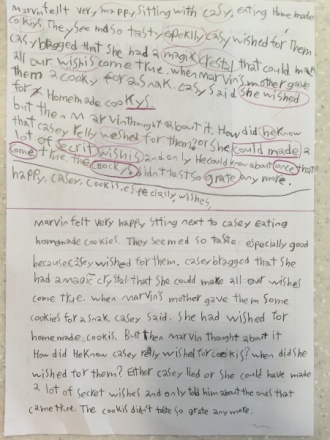 marvin felt very happy sitting with casy, eating Home made
cookiys. They see mod so tasty epeclly casy wished for Them
casy bragged that she had a magik crestol that could mak
all our wishis come true. when marvin's mother gave
them a cooky for a snak. casy said she wished
for Homemade cookys.
but then marvin thought about it. How did he know
that casey relly weshed for them? or she could made a
lot of secrit wishis and only He could know about once that
come true. the coockys didn't tast so grate any more.
happy, casey, cookis, especially, wishes,
marvin felt very happy sitting next to casey eating
homemade cookies. They seemed so taste especially good
because casey wished for them. casey bragged that she
had a magic crystal that she could make all our wishes
come true. when marvin's mother gave them some
cookies for a snak. casey said. she had wished for
homemade cookis. But then marvin thought about it
How did He know casey really wished for cookis? when did she
wished for them? Either casey lied or she could have made
a lot of secret wishes and only told him about the ones that
came true. The cookis didn't taste so grate any more.